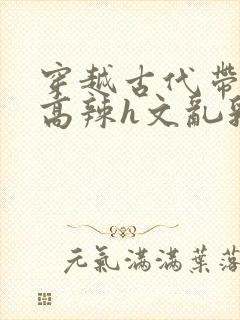 穿越古代带
高辣h文乱
元氣滿滿葉落